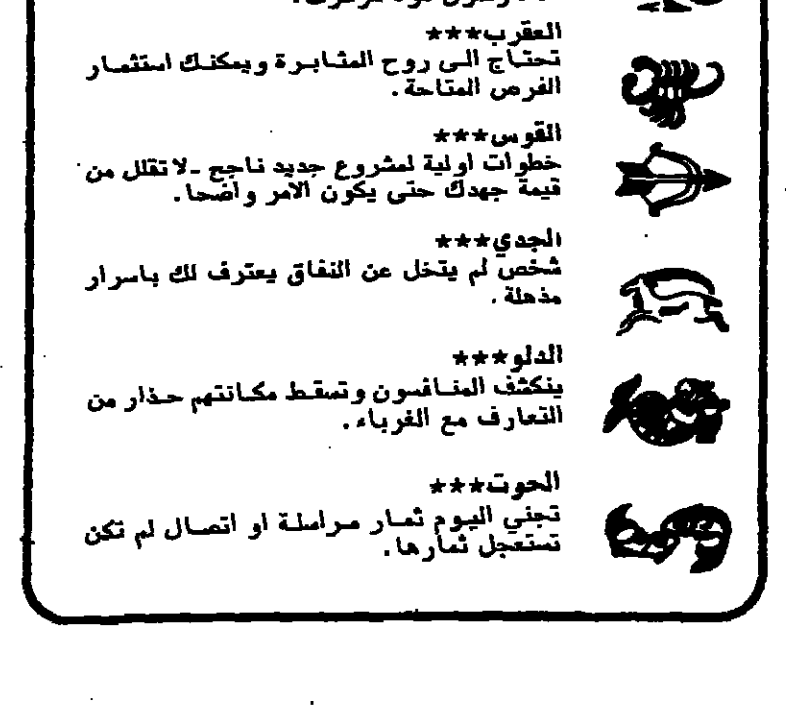 العقرب★★★
تحتاج الى روح المثابرة ويمكنك استثمار
الفرص المتاحة.
القوس★★★
خطوات اولية لمشروع جديد ناجح ـ لا تقلل من
قيمة جهدك حتى يكون الامر واضحا.
الجدي★★★
شخص لم يتخل عن النفاق يعترف لك باسرار
مذهلة.
الدلو★★★
ينكشف المنافسون وتسقط مكانتهم حذار من
التعارف مع الغرباء.
الحوت★★★
تجني اليوم ثمار مراسلة او اتصال لم تكن
تستعجل ثمارها.